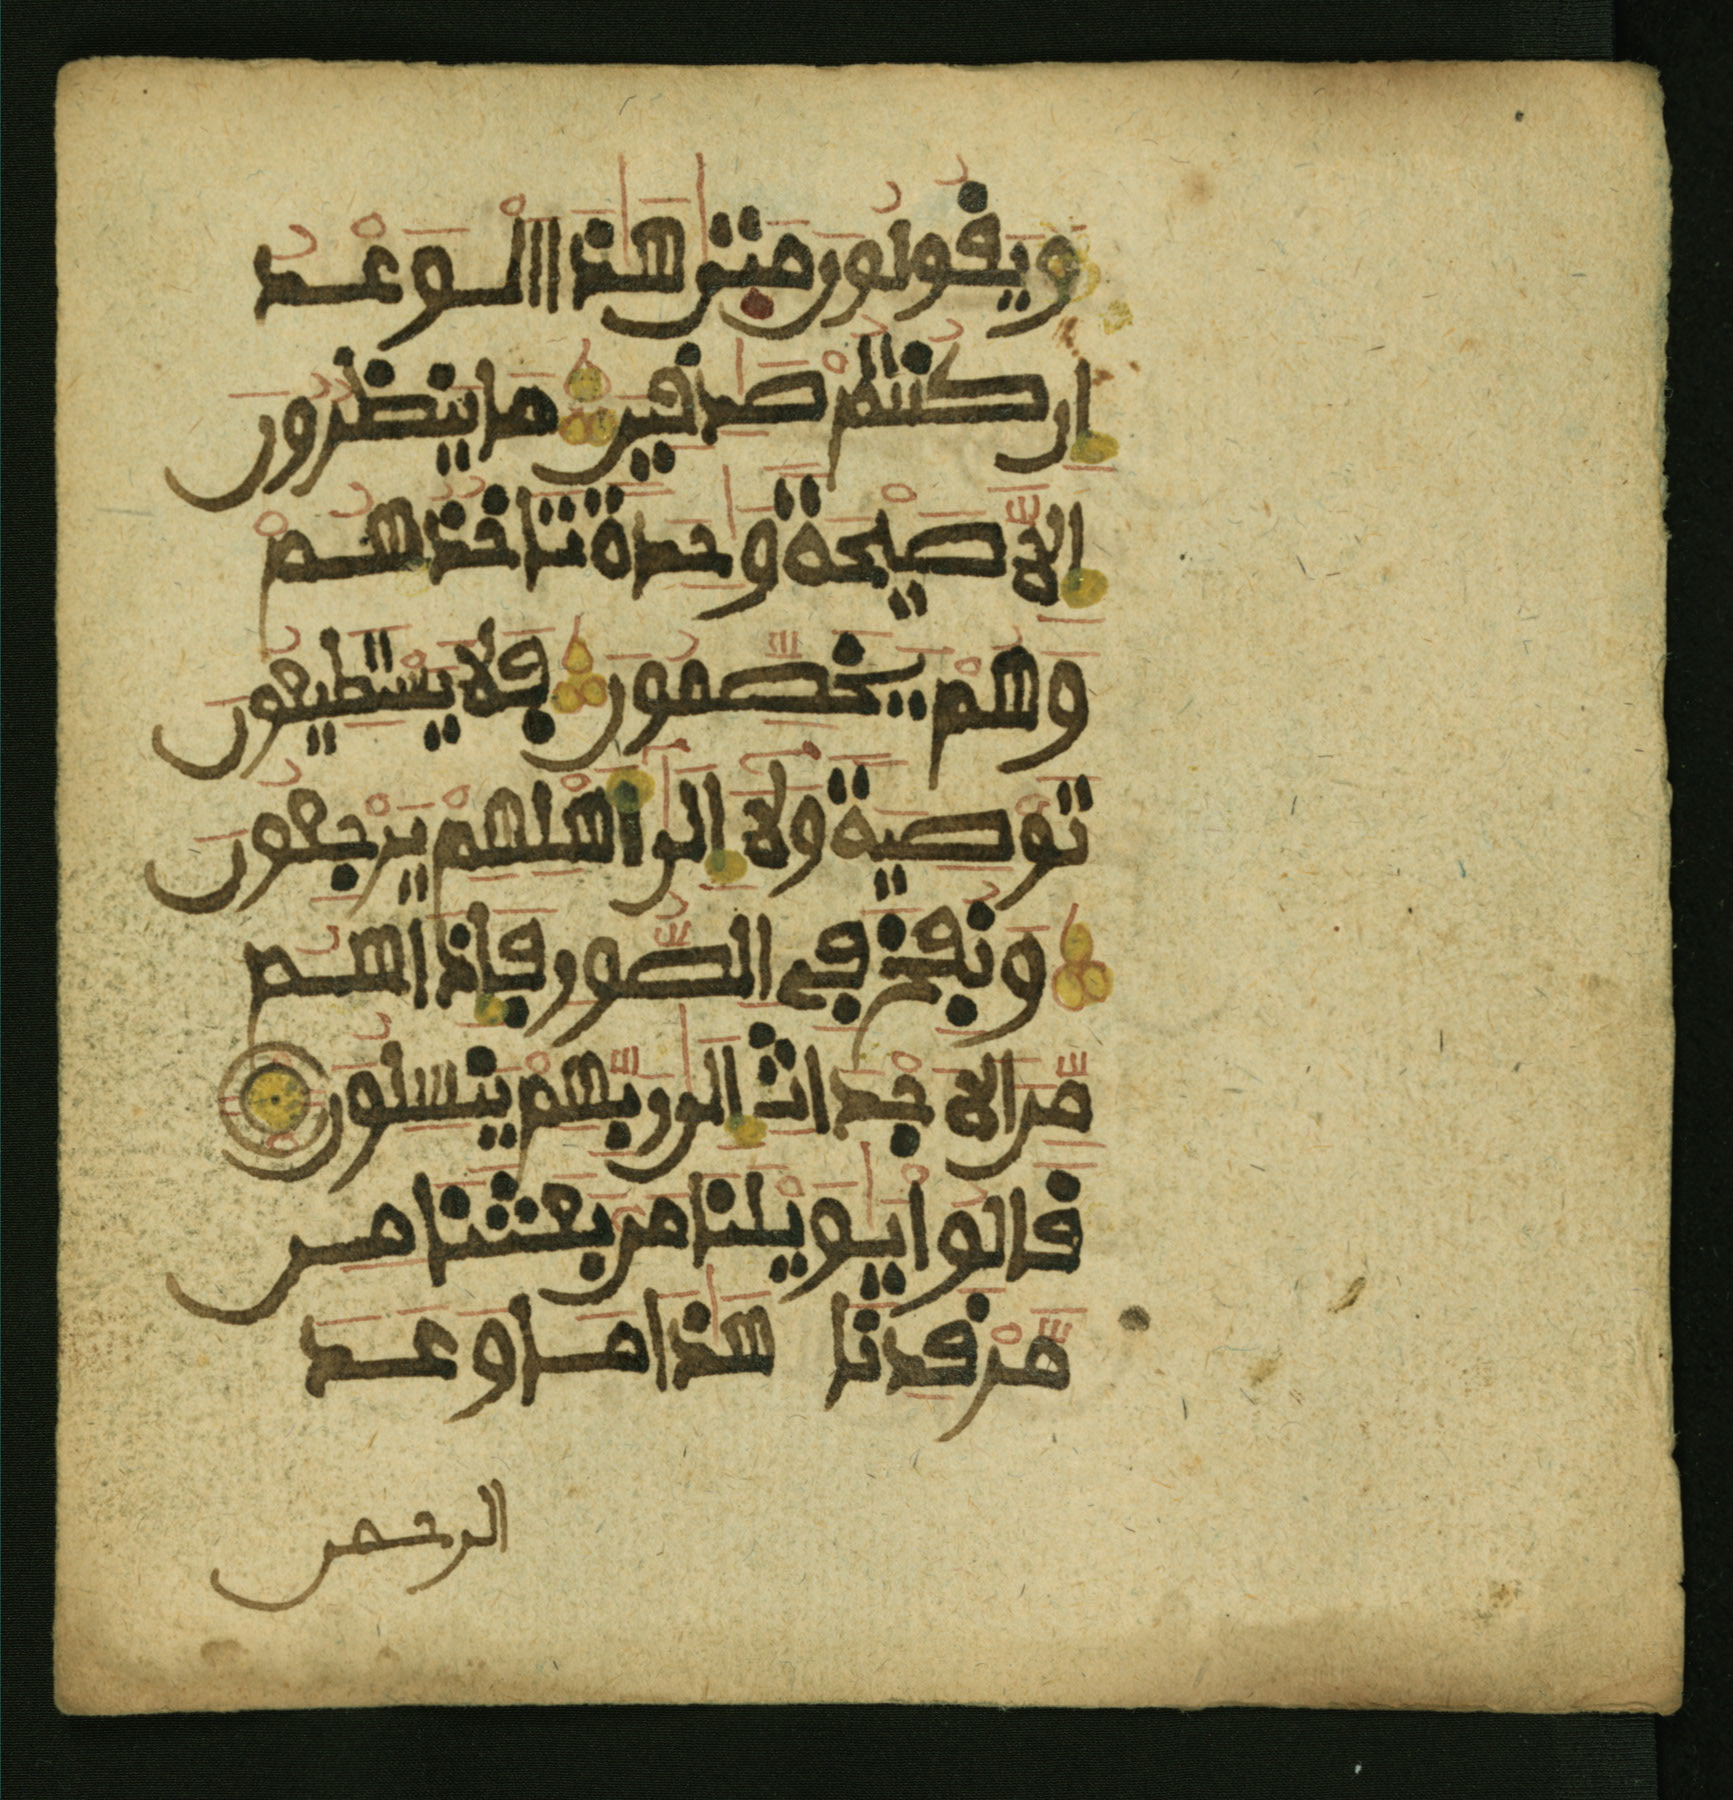 ويقولون متى هذا الوعد
ان كنتم صدقين ما ينظرون
الا صيحة وحدة تاخذهم
وهم يخصمون فلا يستطيعون
توصية ولا الى اهلهم يرجعون
ونفخ في الصور فاذا هم
من الاجداث الى ربهم ينسلون
قالوا يويلنا من بعثنا من
مرقدنا هذا ما وعد
الرحمن